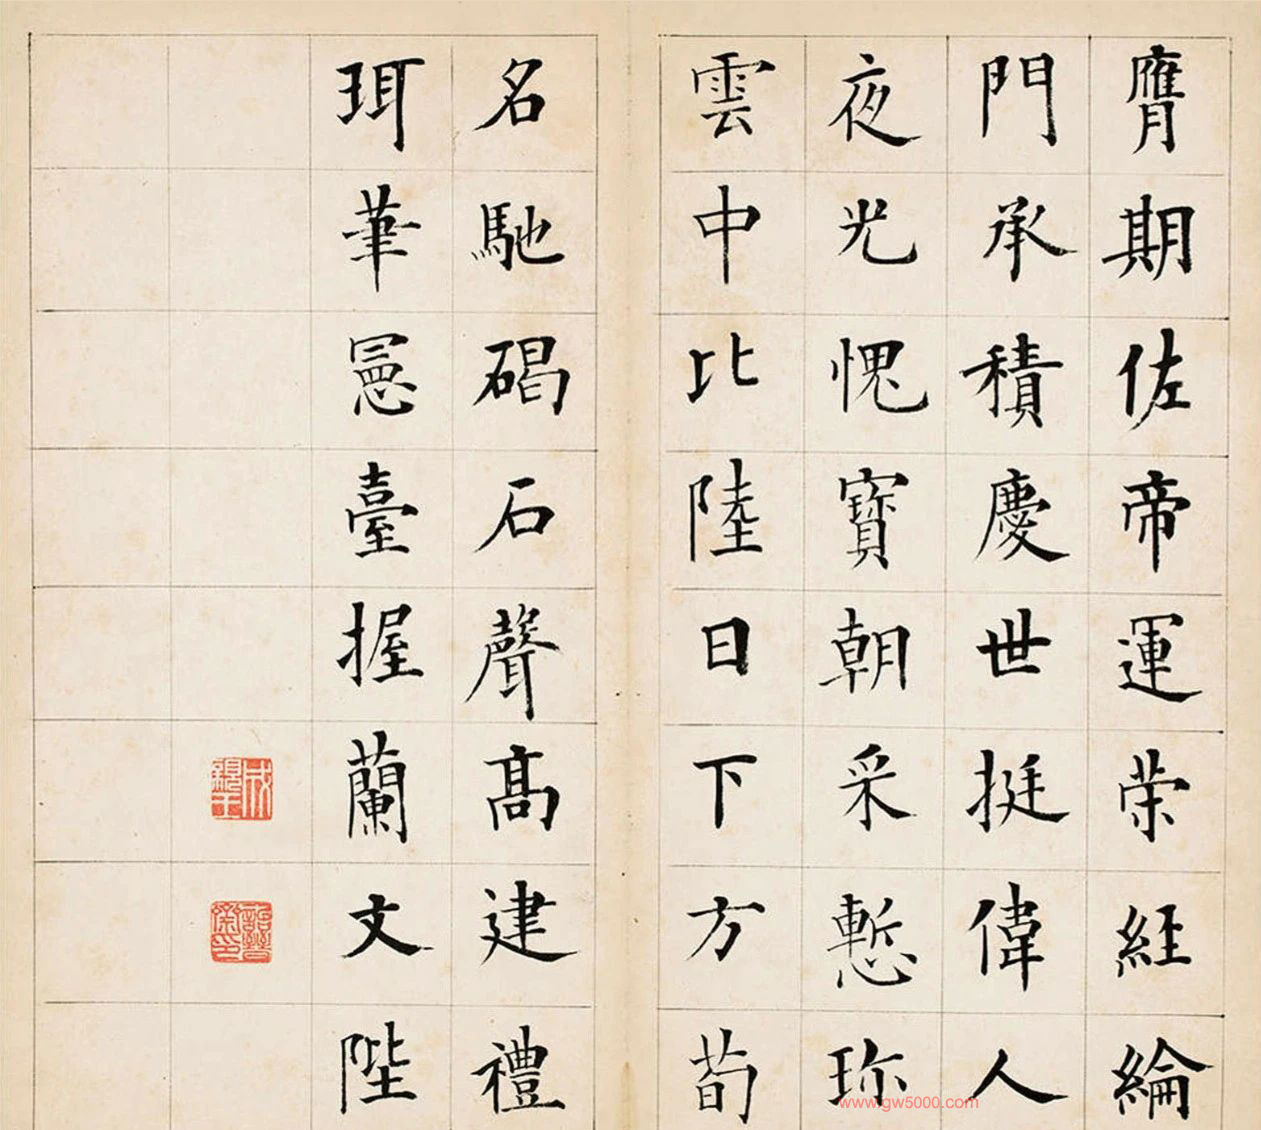 膺期佐帝運荣經綸
門承積慶世挺偉人
夜光愧寶朝采慙珎
雲中比陸日下方荀
名馳碣石聲髙建禮
珥筆憲臺握蘭文陛
www.gw5000.com